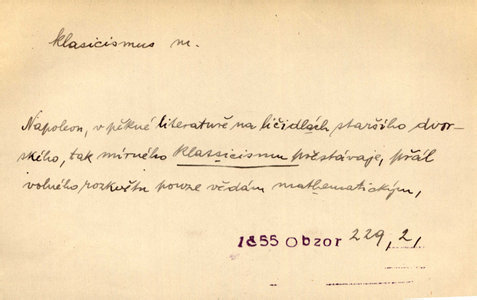 klasicismus m.
Napoleon, v pěkné literatuře na líčidlách staršího dvor-
ského, tak mírného klassicismu přestávaje, přál
volného rozkvětu pouze vědám mathematickým,
1855 Obzor 229, 2,